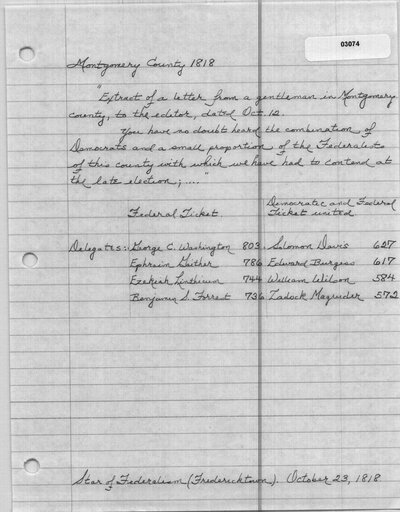 03074
Montgomery County 1818
"Extract of a letter from a gentleman in Montgomery
county, to the editor, dated Oct. 12.
You have no doubt heard the combination of
Democrats and a small proportion of the Federalists
of this county with which we have had to contend at
the late election; ...."
Federal Ticket. Democratic and Federal
Ticket united
Delegates: George C. Washington 803. Solomon Davis 627
Ephraim Gaither 786 Edward Burgess 617
Ezekiah Linthicum 744 William Wilson 584
Benjamin S. Forrest 736 Zadock Magruder 572
Star of Federalism (Fredericktown). October 23, 1818